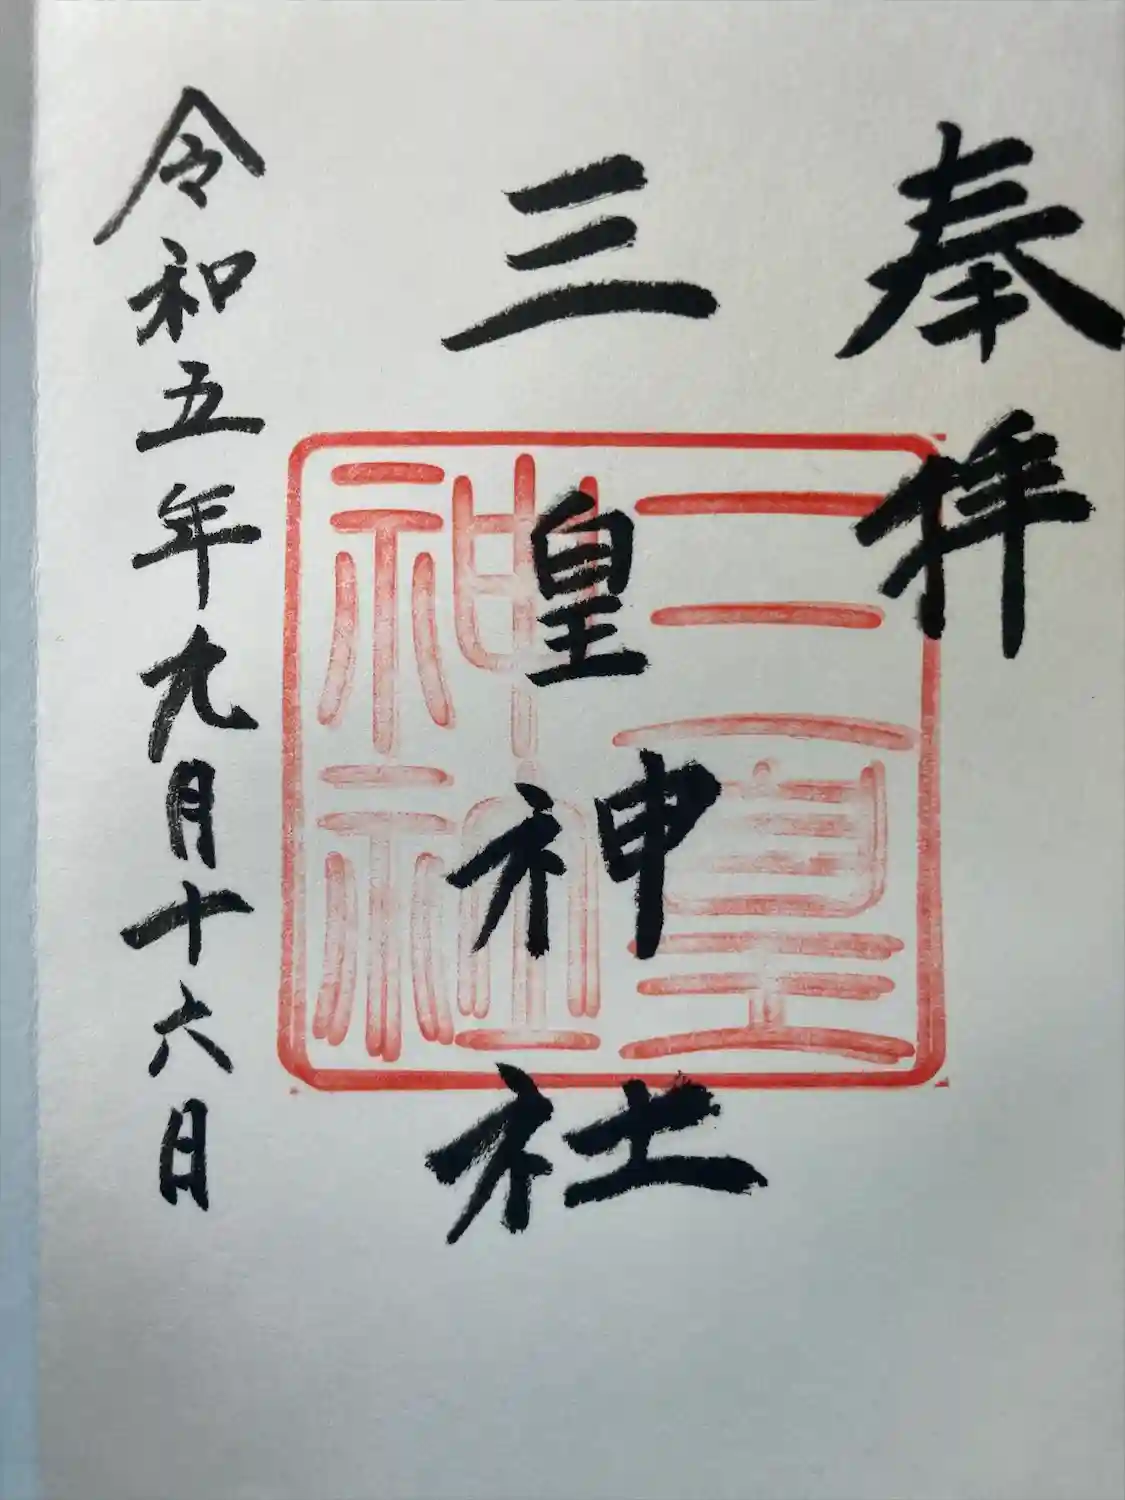 奉拝
三皇神社
三皇
神社
令和五年九月十六日